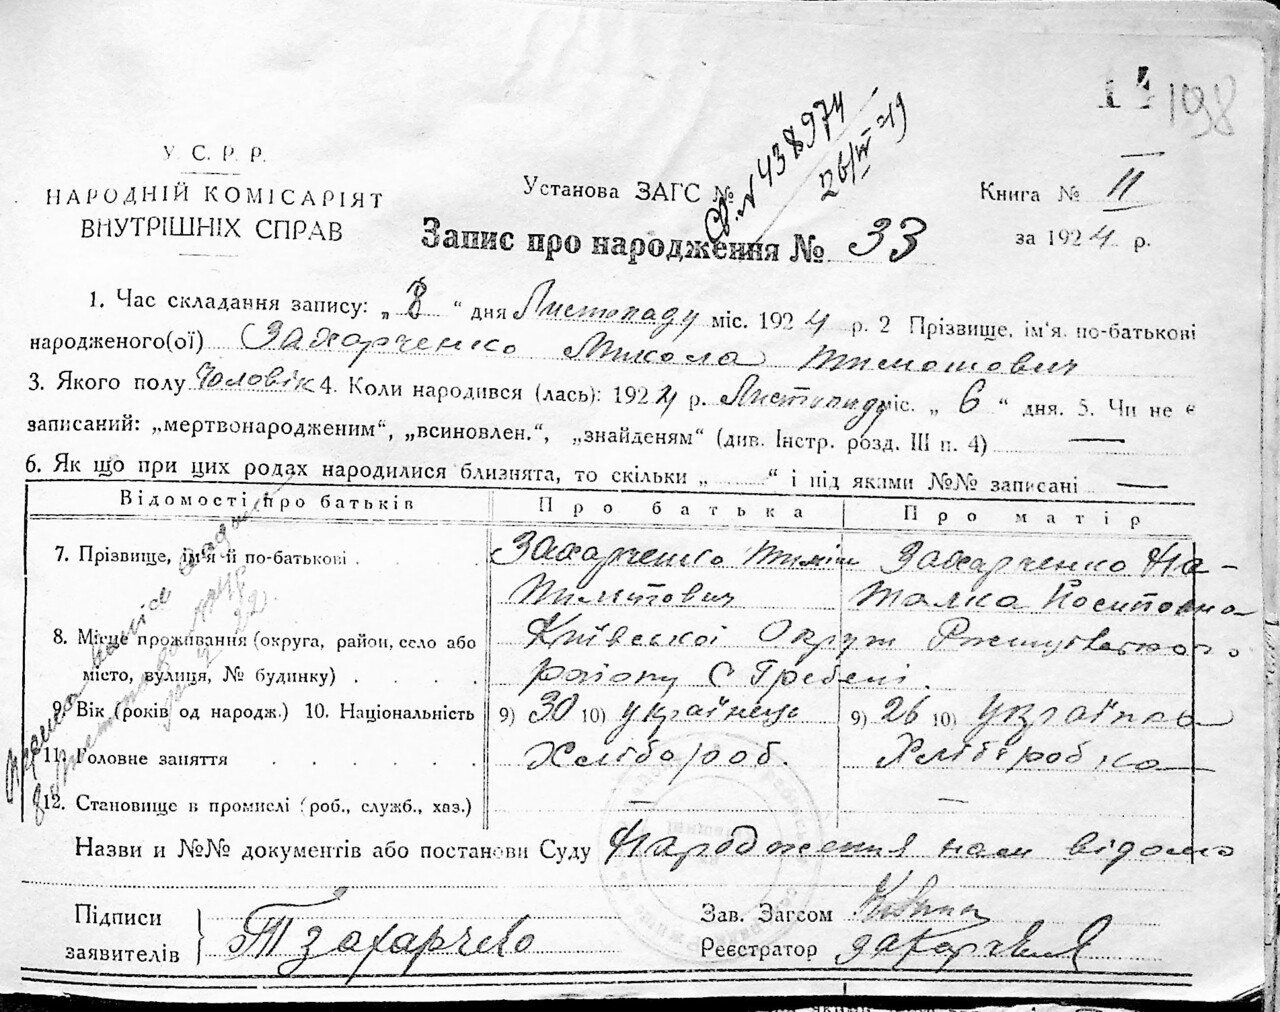 14 198
У. С. Р. Р.
НАРОДНІЙ КОМІСАРІЯТ
ВНУТРІШНІХ СПРАВ
Установа ЗАГС №
№ 438974
26/VI 49
Книга № II
за 1924 р.
Запис про народження № 33
1. Час складання запису: „ 8 “ дня Листопаду міс. 1924 р. 2 Прізвище, ім'я, по-батькові
народженого(ої) Захарченко Микола Тимошович
3. Якого полу Чоловік 4. Коли народився (лась): 1924 р. Листопаду міс. „ 6 “ дня. 5. Чи не є
записаний: „мертвонародженим“, „всиновлен.“, „знайденям“ (див. Інстр. розд. III п. 4) —
6. Як що при цих родах народилися близнята, то скільки „ “ і під яками №№ записані —
Відомості про батьків Про батька Про матір
7. Прізвище, ім'я й по-батькові Захарченко Тиміш Захарченко На-
Тимітович талка Йосиповна
8. Місце проживання (округа, район, село або Київської Округи Ржищевського
місто, вулиця, № будинку) району С Гребені.
9. Вік (років од народж.) 10. Національність 9) 30 10) українець 9) 26 10) українка
11. Головне заняття Хлібороб. Хліборобка
12. Становище в промислі (роб., служб., хаз.) — —
Назви и №№ документів або постанови Суду Народження нам відомо
Підписи
заявителів
Т Захарченко
Зав. Загсом
Реєстратор Захарченко